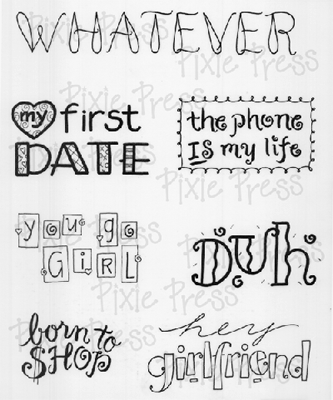 WHATEVER
my first
DATE
the phone
IS my life
you go
GiRL
DUh
born to
$HOP
hey
girlfriend
Pixie Press
Pixie Press
Pixie Press
Pixie Press
Pixie Press